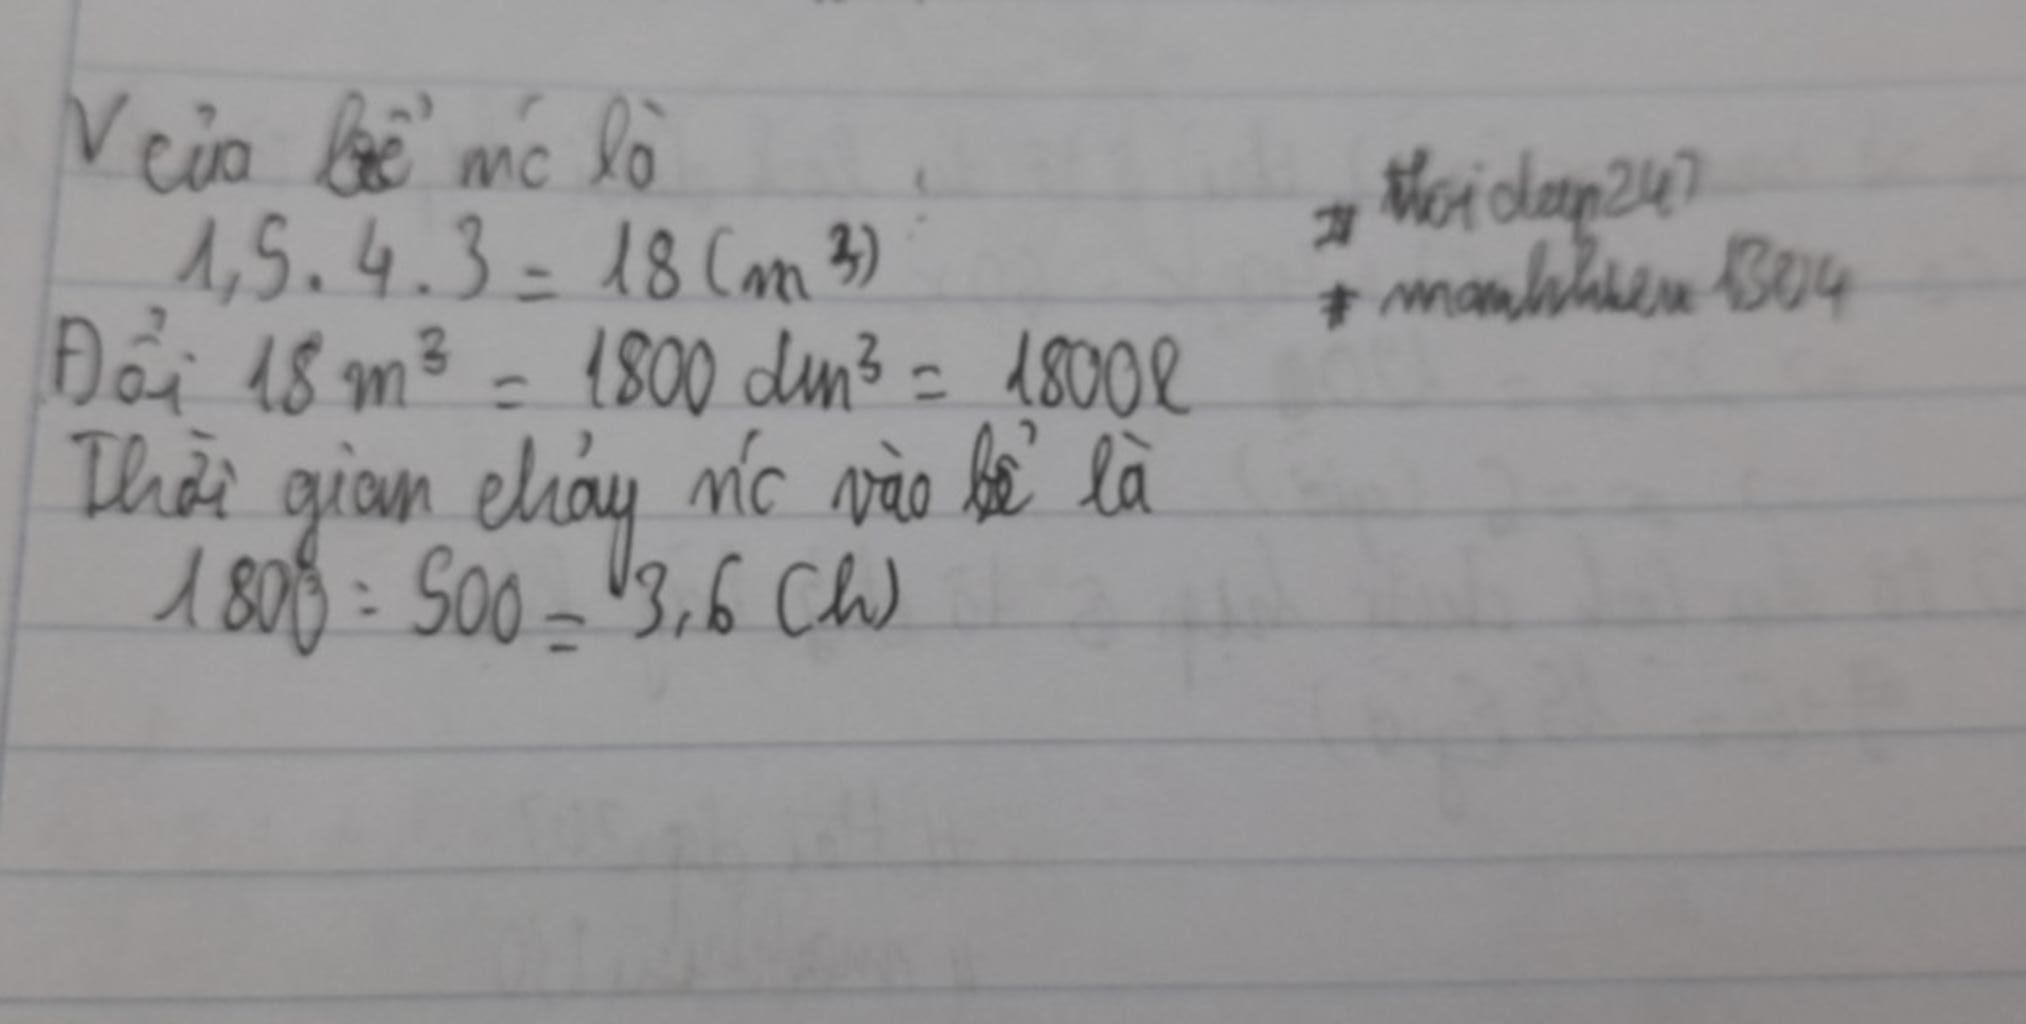 V của bể nc là
1,5 . 4 . 3 = 18 (m³)
Đổi 18 m³ = 1800 dm³ = 1800l
Thời gian chảy nc vào bể là
1800 : 500 = 3,6 (h)
# Hoidap247